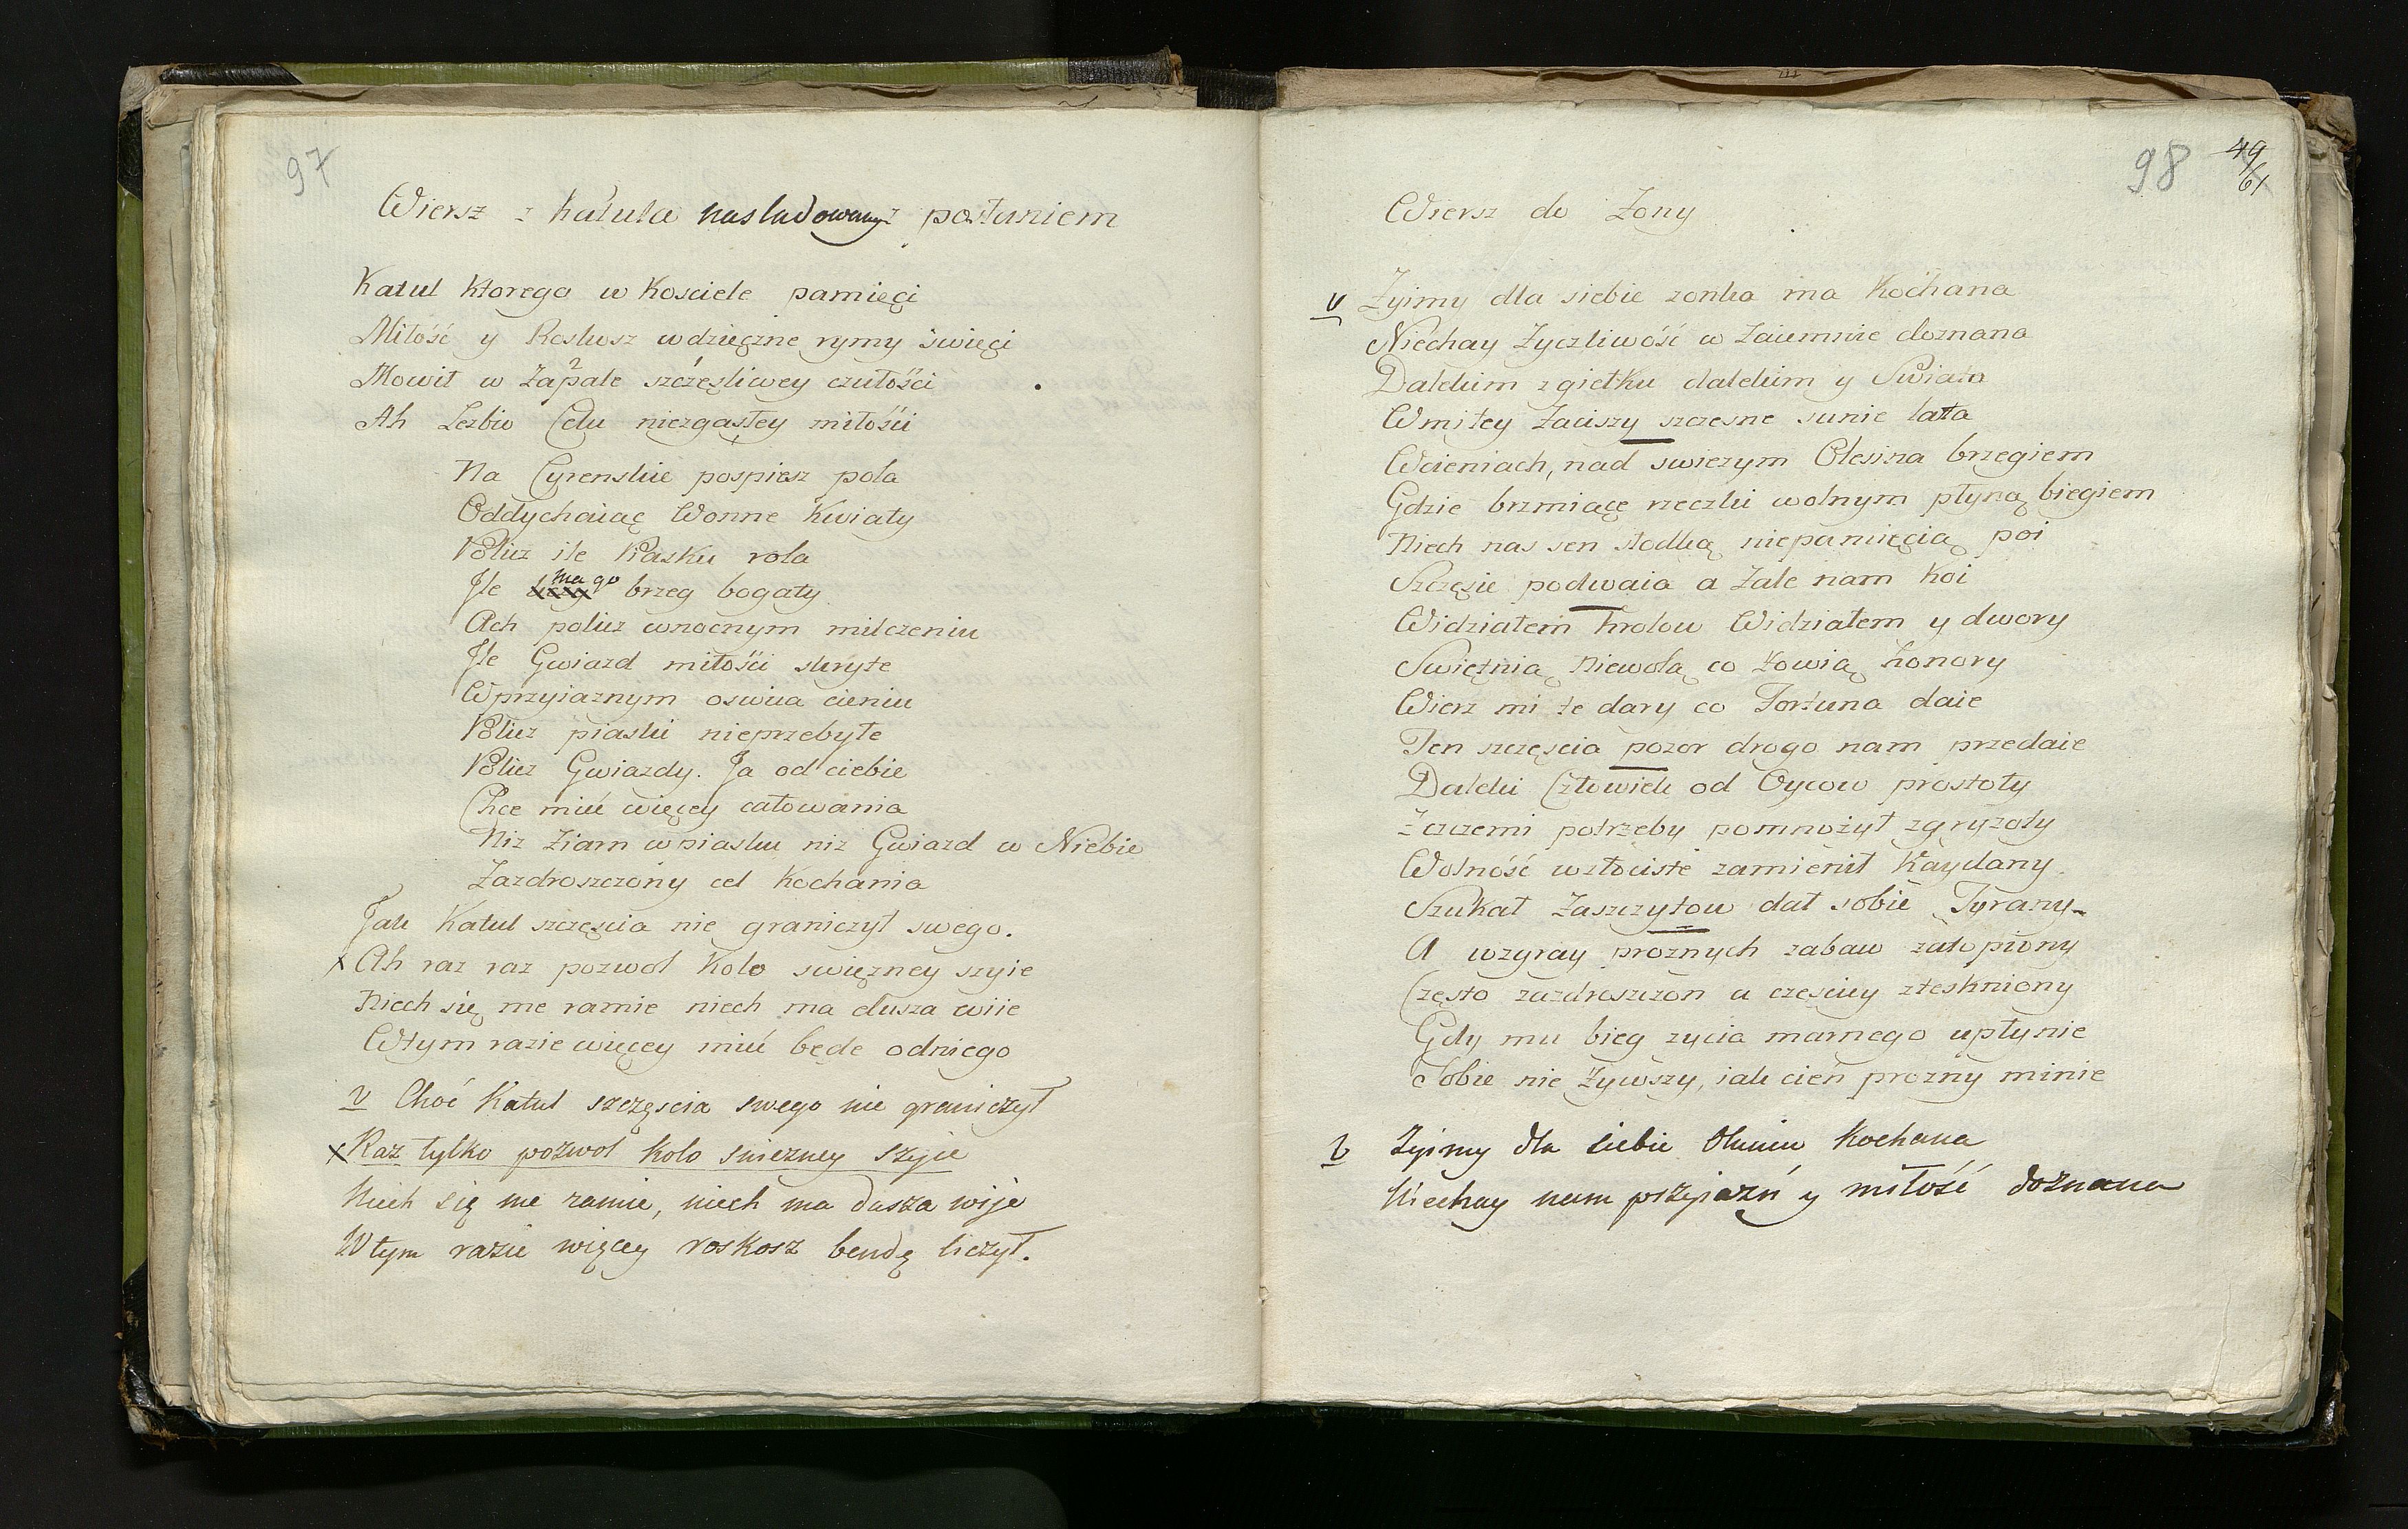 97
Wiersz z Katula nasladowany z posłaniem
Katul ktorego w Kosciele pamięci
Miłość y Roskosz wdzięczne rymy swięci
Mowił w Zapale szczęsliwey czułości
Ah Lezbio Celu niezgasłey miłości
Na Cyrenskie pospiesz pola
Oddychaiąc Wonne Kwiaty
Policz ile Piasku rola
Jle ma go brzeg bogaty
Ach policz wnocnym milczeniu
Jle Gwiazd miłości skryte
Wprzyiaznym oswica cieniu
Policz piaski nieprzebyte
Policz Gwiazdy. Ja od ciebie
Chce mieć więcey całowania
Niz Ziarn w piasku niz Gwiazd w Niebie
Zazdroszczony cel Kochania
Jak Katul szczęscia nie graniczył swego.
x Ah raz raz pozwol Kolo swięzney szyie
Niech się me ramie niech ma dusza wiie
Wtym razie więcey mieć będe odniego
v Choć Katul szczęscia swego nie graniczył
x Raz tylko pozwol kolo snieżney szyie
Niech się me ramie, niech ma dusza wije
W tym razie więcey roskosz bendę liczył.
98 49
61
Wiersz do Zony
v Zyimy dla siebie zonka ma Kochana
Niechay Zyczliwość w Zaiemnie doznana
Dalekim zgiełku dalekim y Swiata
Wmiłey Zaciszy szczesne sunie lata
Wcieniach, nad swiezym Olesina brzegiem
Gdzie brzmiące rzeczki wolnym płyną biegiem
Niech nas sen słodką niepamięcią poi
Szczęsie podwaia a Zale nam Koi
Widziałem Krolow Widziałem y dwory
Swietnią Niewolą co łowią honory
Wierz mi te dary co Fortuna daie
Ten szczęscia pozor drogo nam przedaie
Daleki Człowiek od Oycow prostoty
Zczczemi potrzeby pomnożył zgryzoty
Wolność wzłociste zamienił Kaydany
Szukał Zaszczytow dał sobie Tyrany
A wzgray proznych zabaw zatopiony
Często zazdroszczon a częscicy ztęskniony
Gdy mu bieg zycia marnego upłynie
Sobie nie Zywszy, iak cień prozny minie
v Zyimy dla siebie Oluniu Kochana
Niechay nam przyiazń y miłość doznana